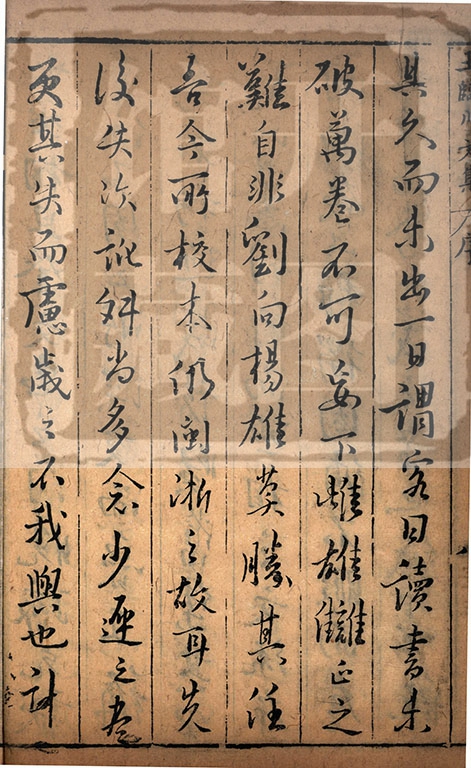 具久而未出一日謂客曰讀書未
破萬卷不可妄下雌雄讎正之
難自非劉向楊雄莫勝其任
吾今所校本仍閩淅之故耳先
後失次訛舛尚多念少遲之盡
更其失而慮歲之不我與也計